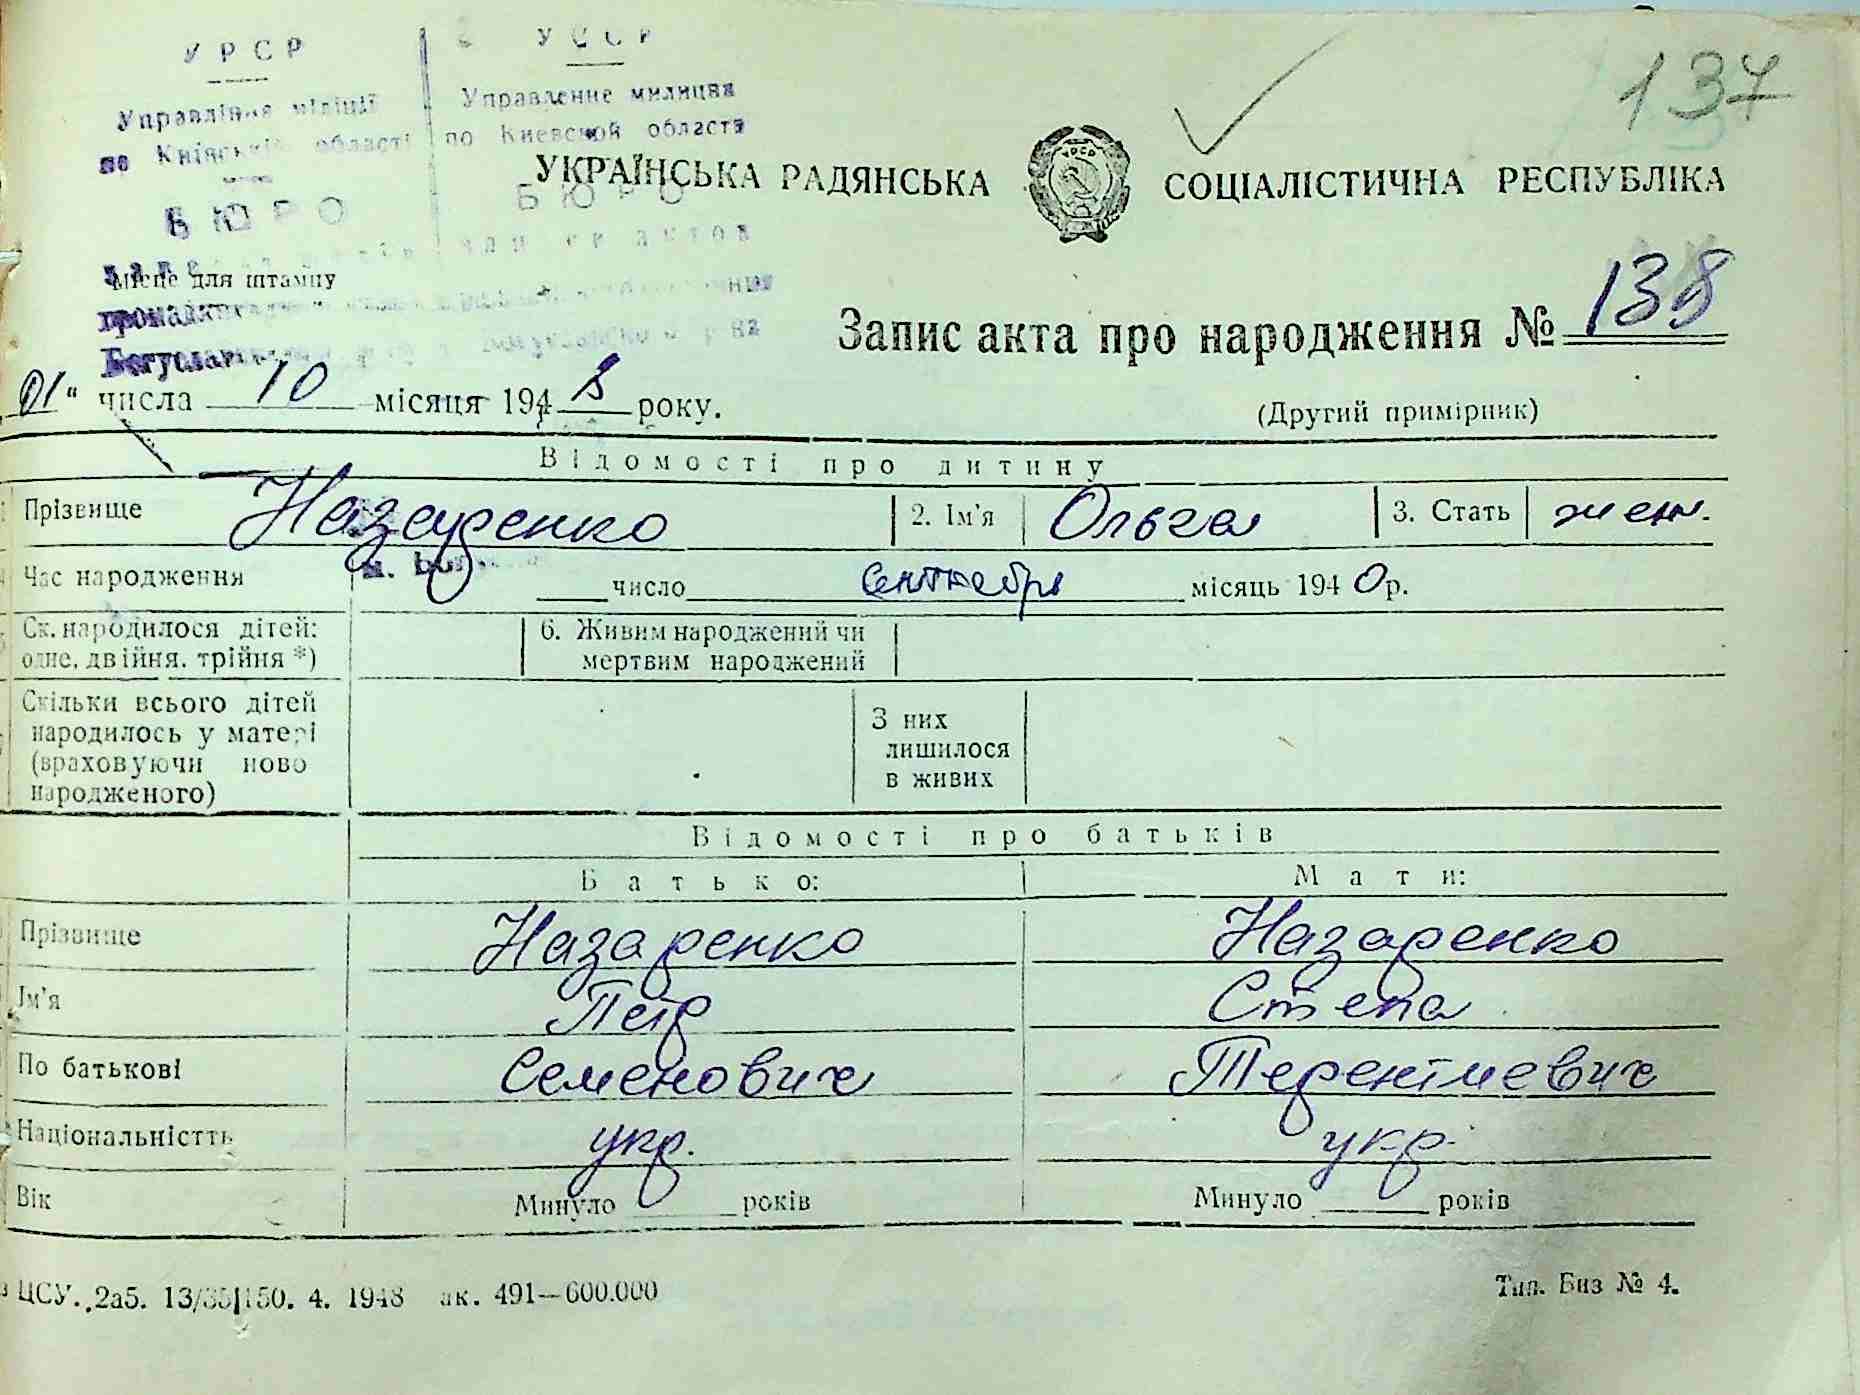 137
УРСР
УССР
Управління міліції
Управление милиции
по Київській області
по Киевской области
УКРАЇНСЬКА РАДЯНСЬКА СОЦІАЛІСТИЧНА РЕСПУБЛІКА
БЮРО
БЮРО
Місце для штампу
Запис акта про народження № 138
01 " числа 10 місяця 1948 року.
(Другий примірник)
Відомості про дитину
Прізвище Назаренко 2. Ім'я Ольга 3. Стать жен.
Час народження число сентября місяць 1940 р.
Ск. народилося дітей: 6. Живим народжений чи
одне, двійня, трійня *) мертвим народжений
Скільки всього дітей
народилось у матері
(враховуючи ново
народженого)
З них
лишилося
в живих
Відомості про батьків
Батько: Мати:
Прізвище Назаренко Назаренко
Ім'я Петр Степа
По батькові Семенович
Національністть укр. укр.
Вік Минуло років Минуло років
ЦСУ. 2а5. 13/35 150. 4. 1948 ак. 491—600.000 Тип. Биз № 4.